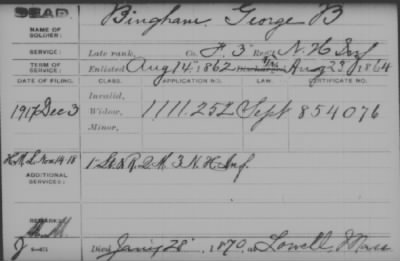 DEAD.
NAME OF SOLDIER: Bingham, George B
SERVICE: Late rank, Co. F, 3 Reg't N. H. Inf
TERM OF SERVICE: Enlisted Aug 14, 1862 Aug 23, 1864
DATE OF FILING. CLASS. APPLICATION NO. LAW. CERTIFICATE NO.
Invalid,
1917 Dec 3 Widow, 1111.252 Sept 854076
Minor,
ADDITIONAL SERVICES: 1 Lt & R. Q. M. 3 N. H. Inf.
REMARKS:
Died Jan'y 28, 1870, at Lowell Mass